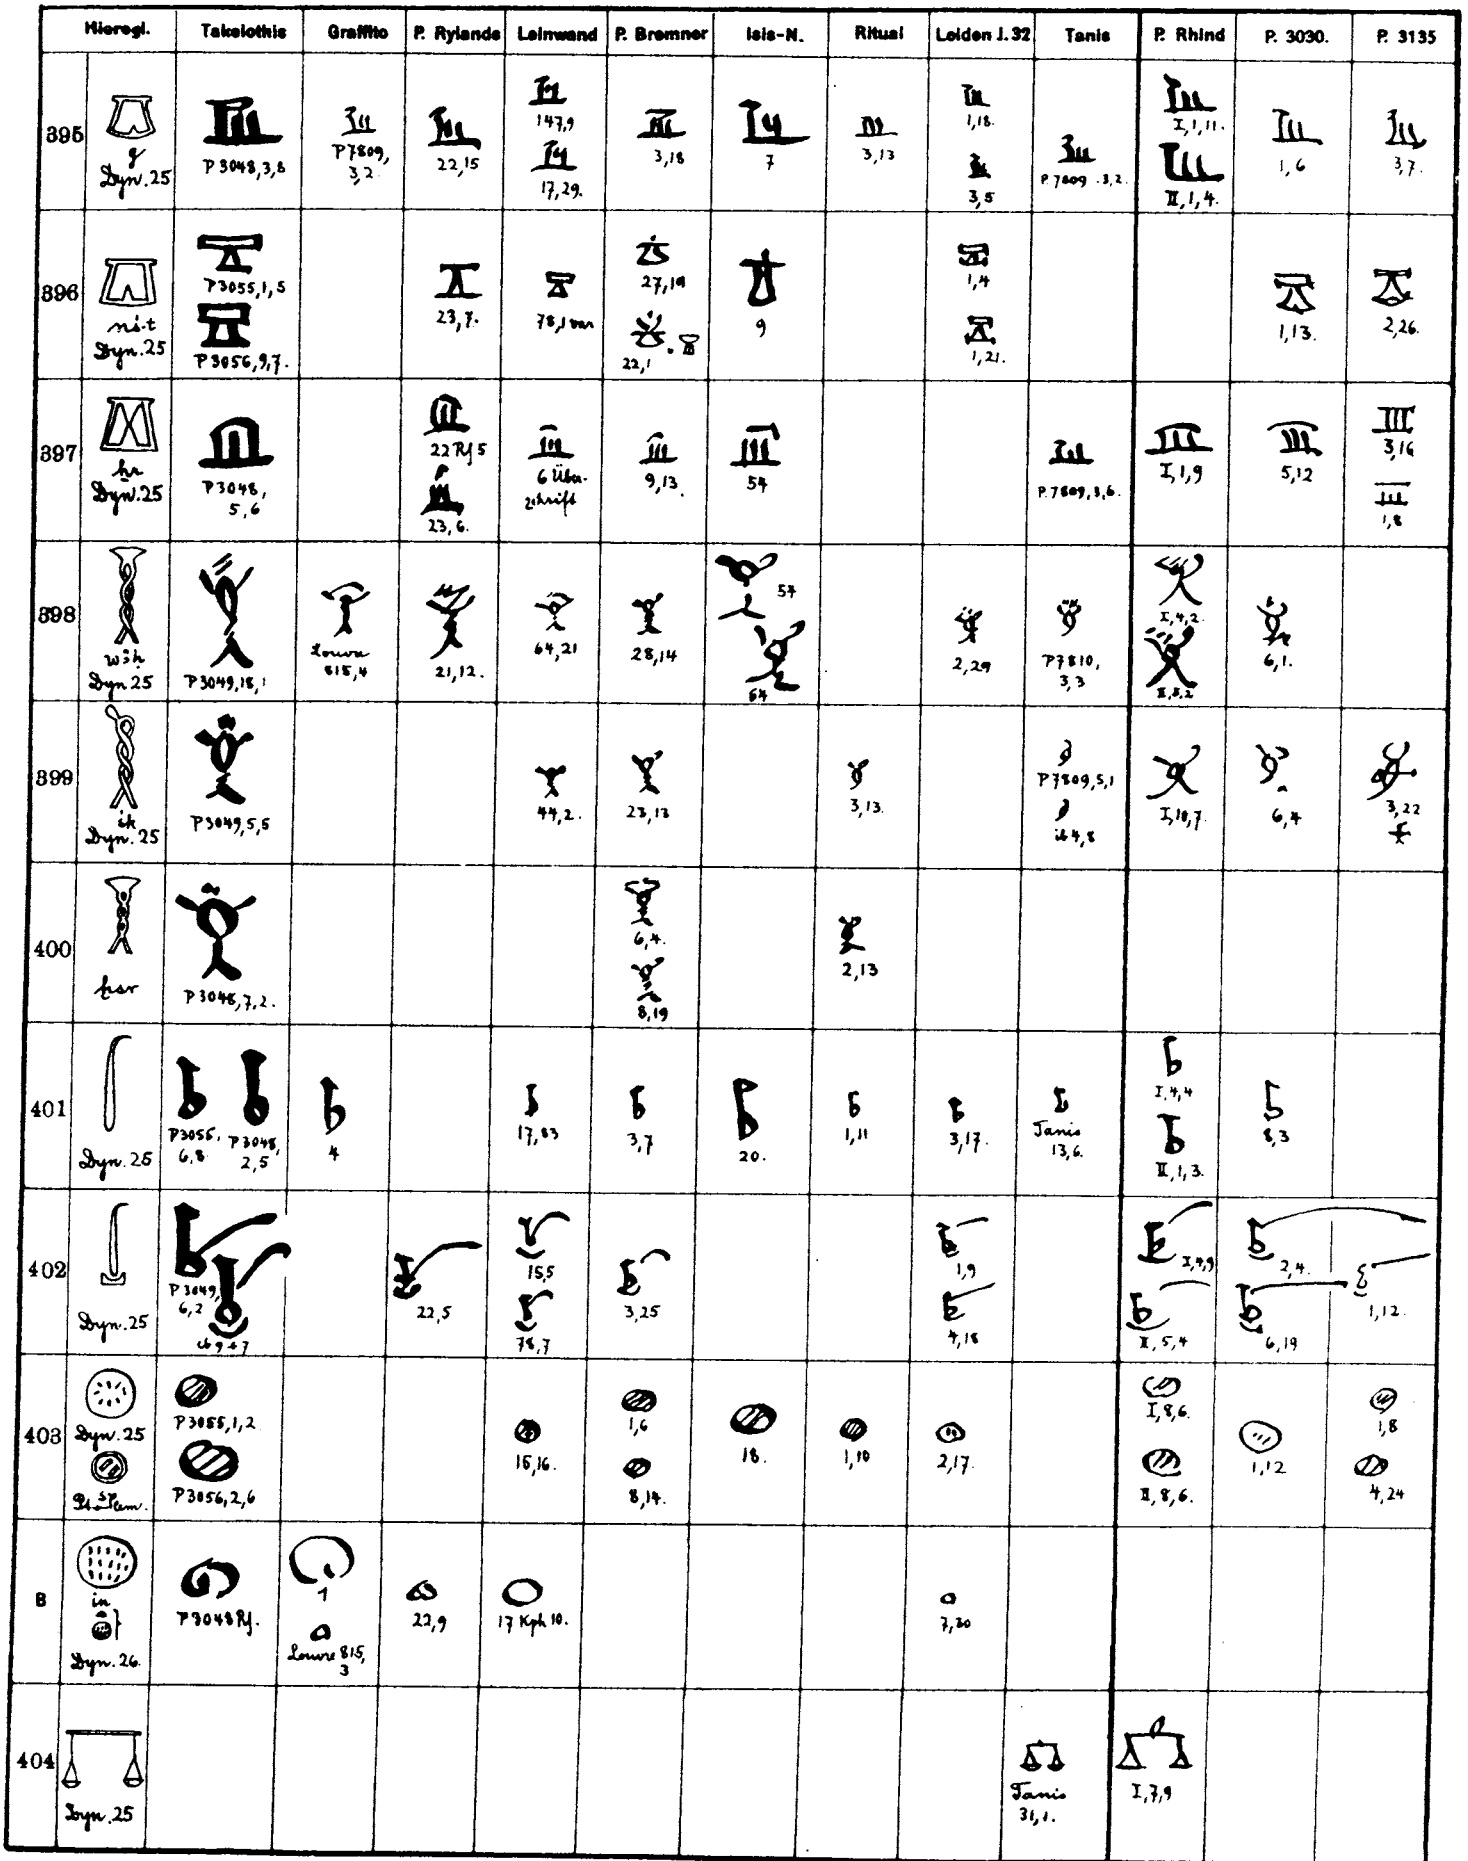 Hieregl. Takelothis Graffito P. Rylands Leinwand P. Bremner Isis-N. Ritual Leiden J.32 Tanis P. Rhind P. 3030. P. 3135
395
g
Dyn. 25
P 3048,3,8
P 7809,
3,2.
22,15
147,9
17,29.
3,18
7
3,13
1,18.
3,5
P. 7809 .3,2.
I,1,11.
II,1,4.
1,6
3,7.
396
nś-t
Dyn. 25
P 3055,1,5
P 3056,9,7.
23,7.
78,1 var
27,19
22,1
9
1,4
1,21.
1,13.
2,26.
397
hr
Dyn. 25
P 3048,
5,6
22 Rf 5
23,6.
6 Über-
schrift
9,13.
54
P. 7809,3,6.
I,1,9
5,12
3,16
1,8
398
wꜣḥ
Dyn 25
P 3049,18,1
Louvre
815,4
21,12.
64,21
28,14
54
54
2,29
P 7810,
3,3
I,4,2.
II,8,2
6,1.
399
Dyn. 25
P 3049,5,5
44,2.
23,13
3,13.
P 7809,5,1
ib 4,8
I,10,7.
6,4
3,22
400
ḥsr
P 3048,7,2.
6,4.
8,19
2,13
401
Dyn. 25
P 3055,
6,8
P 3048,
2,5
4
17,83
3,7
20.
1,11
3,17.
Tanis
13,6.
I,4,4
II,1,3.
8,3
402
Dyn. 25
P 3049,
6,2
22,5
15,5
78,7
3,25
1,9
4,18
I,4,9
II,5,4
2,4.
6,19
1,12.
403
Dyn. 25
P 3055,1,2
P 3056,2,6
15,16.
1,6
8,14.
18.
1,10
2,17.
I,8,6.
II,8,6.
1,12
1,8
4,24
B
in
Dyn. 26.
P 3048 Rf.
1
Louvre 815,
3
22,9
17 Kph 10.
7,30
404
Dyn. 25
Tanis
31,1.
I,7,9